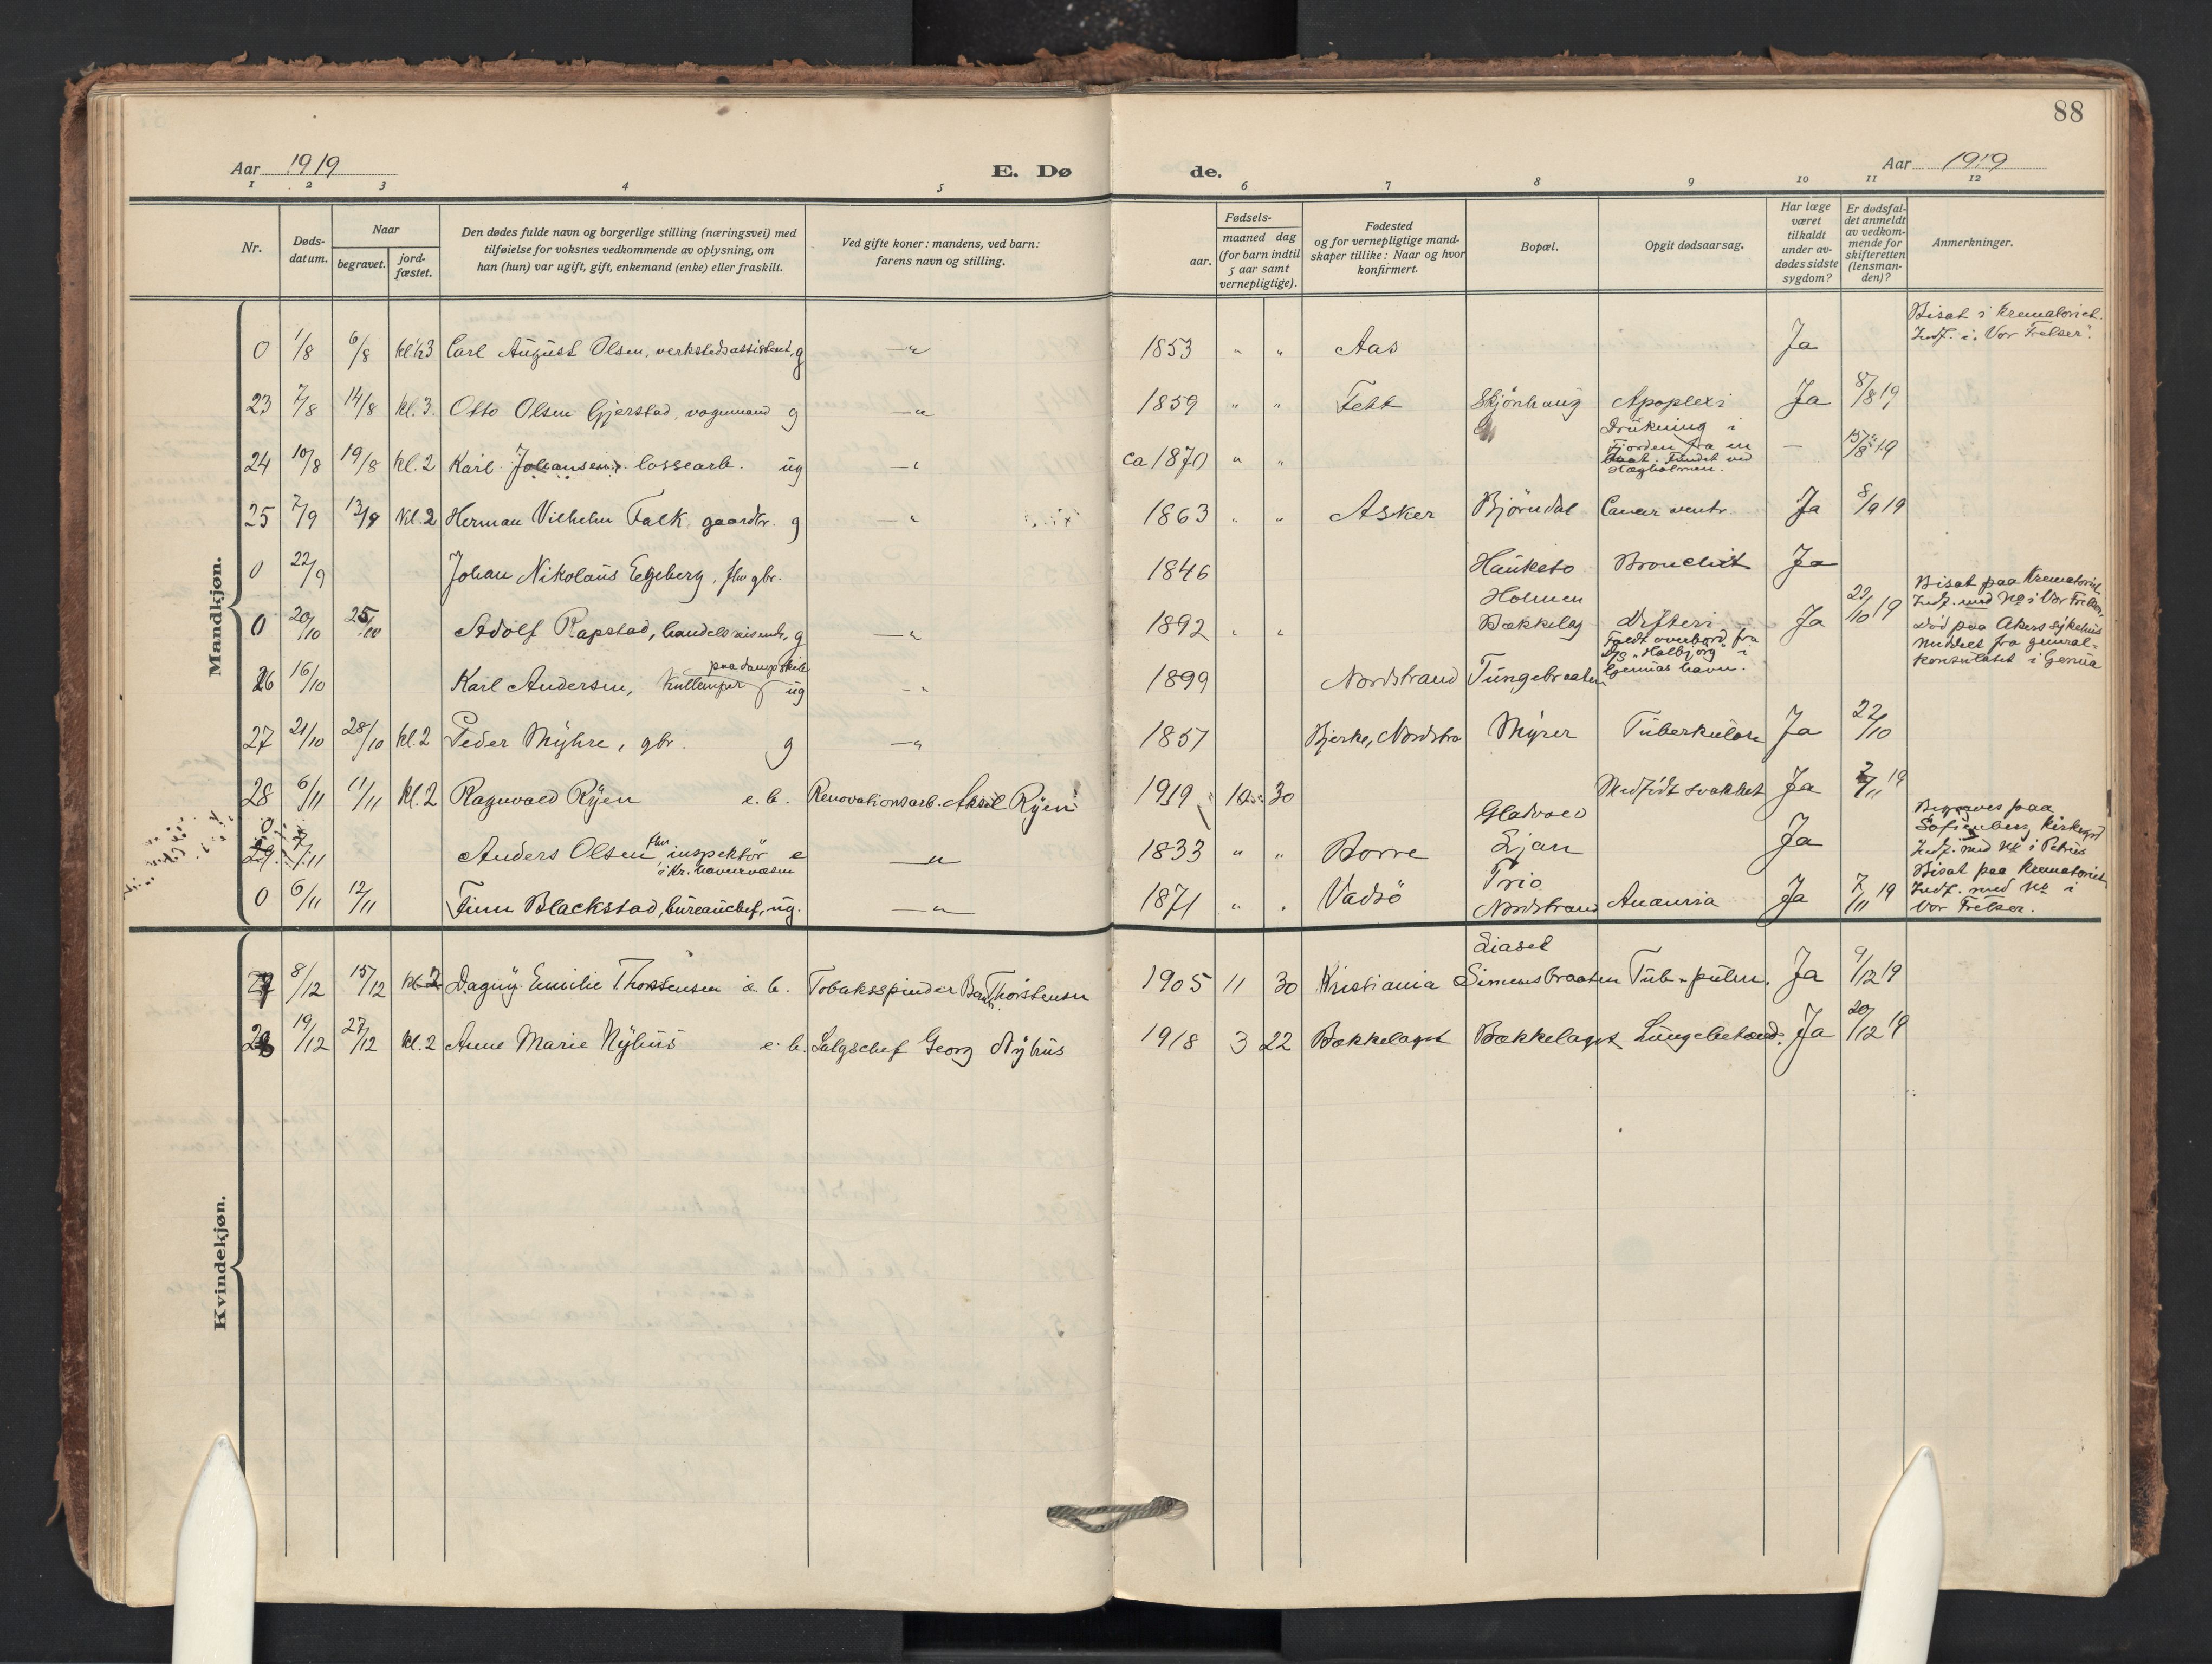 88
Aar 1919
E. Dø
de.
Aar 1919
1 2 3 4 5 6 7 8 9 10 11 12
Nr.
Døds-
datum.
Naar
begravet.
jord-
fæstet.
Den dødes fulde navn og borgerlige stilling (næringsvei) med
tilføielse for voksnes vedkommende av oplysning, om
han (hun) var ugift, gift, enkemand (enke) eller fraskilt.
Ved gifte koner: mandens, ved barn:
farens navn og stilling.
Fødsels-
aar.
maaned dag
(for barn indtil
5 aar samt
vernepligtige).
Fødested
og for vernepligtige mand-
skaper tillike: Naar og hvor
konfirmert.
Bopæl.
Opgit dødsaarsag.
Har læge
været
tilkaldt
under av-
dødes sidste
sygdom?
Er dødsfal-
det anmeldt
av vedkom-
mende for
skifteretten
(lensman-
den)?
Anmerkninger.
Mandkjøn.
0 1/8 6/8 Carl August Olsen, verkstedsassistent, g —" 1853 " " Aas Ja
Bisat i krematoriet.
Indf. i "Vor Frelser".
23 7/8 14/8 kl. 3. Otto Olsen Gjerstad, vognmand g —" 1859 " " Fett Skjönhaug Apoplexi Ja 8/8 19
24 10/8 19/8 kl. 2 Karl Johansen, lossearb. ug —" ca 1870 " " Drukning i
Fjorden fra en
baat. Fundet ved
Hægholmen. — 15/8 19
25 7/9 13/9 kl. 2 Herman Vilhelm Falk gaardbr. g —" 1863 " " Asker Bjørndal Cancer ventr. Ja 8/9 19
0 22/9 Johan Nikolaus Egeberg, fhv gbr. 1846 Hauketo Bronchit Ja
0 20/10 25/10 Adolf Rapstad, handelsreisende, g —" 1892 " " Holmen
Bækkelag Difteri Ja 22/10 19
Bisat paa Krematoriet.
Indf. med No i Vor Frelser,
Død paa Akers sykehus
26 16/10 Karl Andersen, kullemper paa dampskib ug —" 1899 Nordstrand Tungebraaten
Faldt overbord fra
D/S "Halbjörg" i
Genuas havn.
meddelt fra general-
konsulatet i Genua
27 21/10 28/10 kl. 2 Peder Myhre, gbr. g —" 1857 Bjerke, Nordstra Myrer Tuberkulose Ja 22/10
28 6/11 11/11 kl. 2 Ragnvald Ryen e. b. Renovationsarb. Aksel Ryen 1919 10 30 Medfødt svakhet Ja 7/11 19
0
29 7/11 Anders Olsen fhv inspektör e
i Kr. havnevæsen —" 1833 " " Borre Gladvold
Ljan Ja
Begraves paa
Sofienberg kirkegrd
Indf. med No i Petrus
0 6/11 12/11 Finn Blackstad, bureauchef, ug. —" 1871 " " Vadsö Trio
Nordstrand Ja 7/11 19
Bisat paa krematoriet
Indf. med No i
Vor Frelser.
Kvindekjøn.
27 8/12 15/12 kl. 2 Dagny Emilie Thorstensen e. b. Tobakspinder Thorstensen 1905 11 30 Kristiania Liaset
Simensbraaten Tub. pulm. Ja 9/12 19
28 19/12 27/12 kl. 2 Anne Marie Nyhus e. b. Salgschef Georg Nyhus 1918 3 22 Bækkelaget Bækkelaget Lungebetænd. Ja 20/12 19